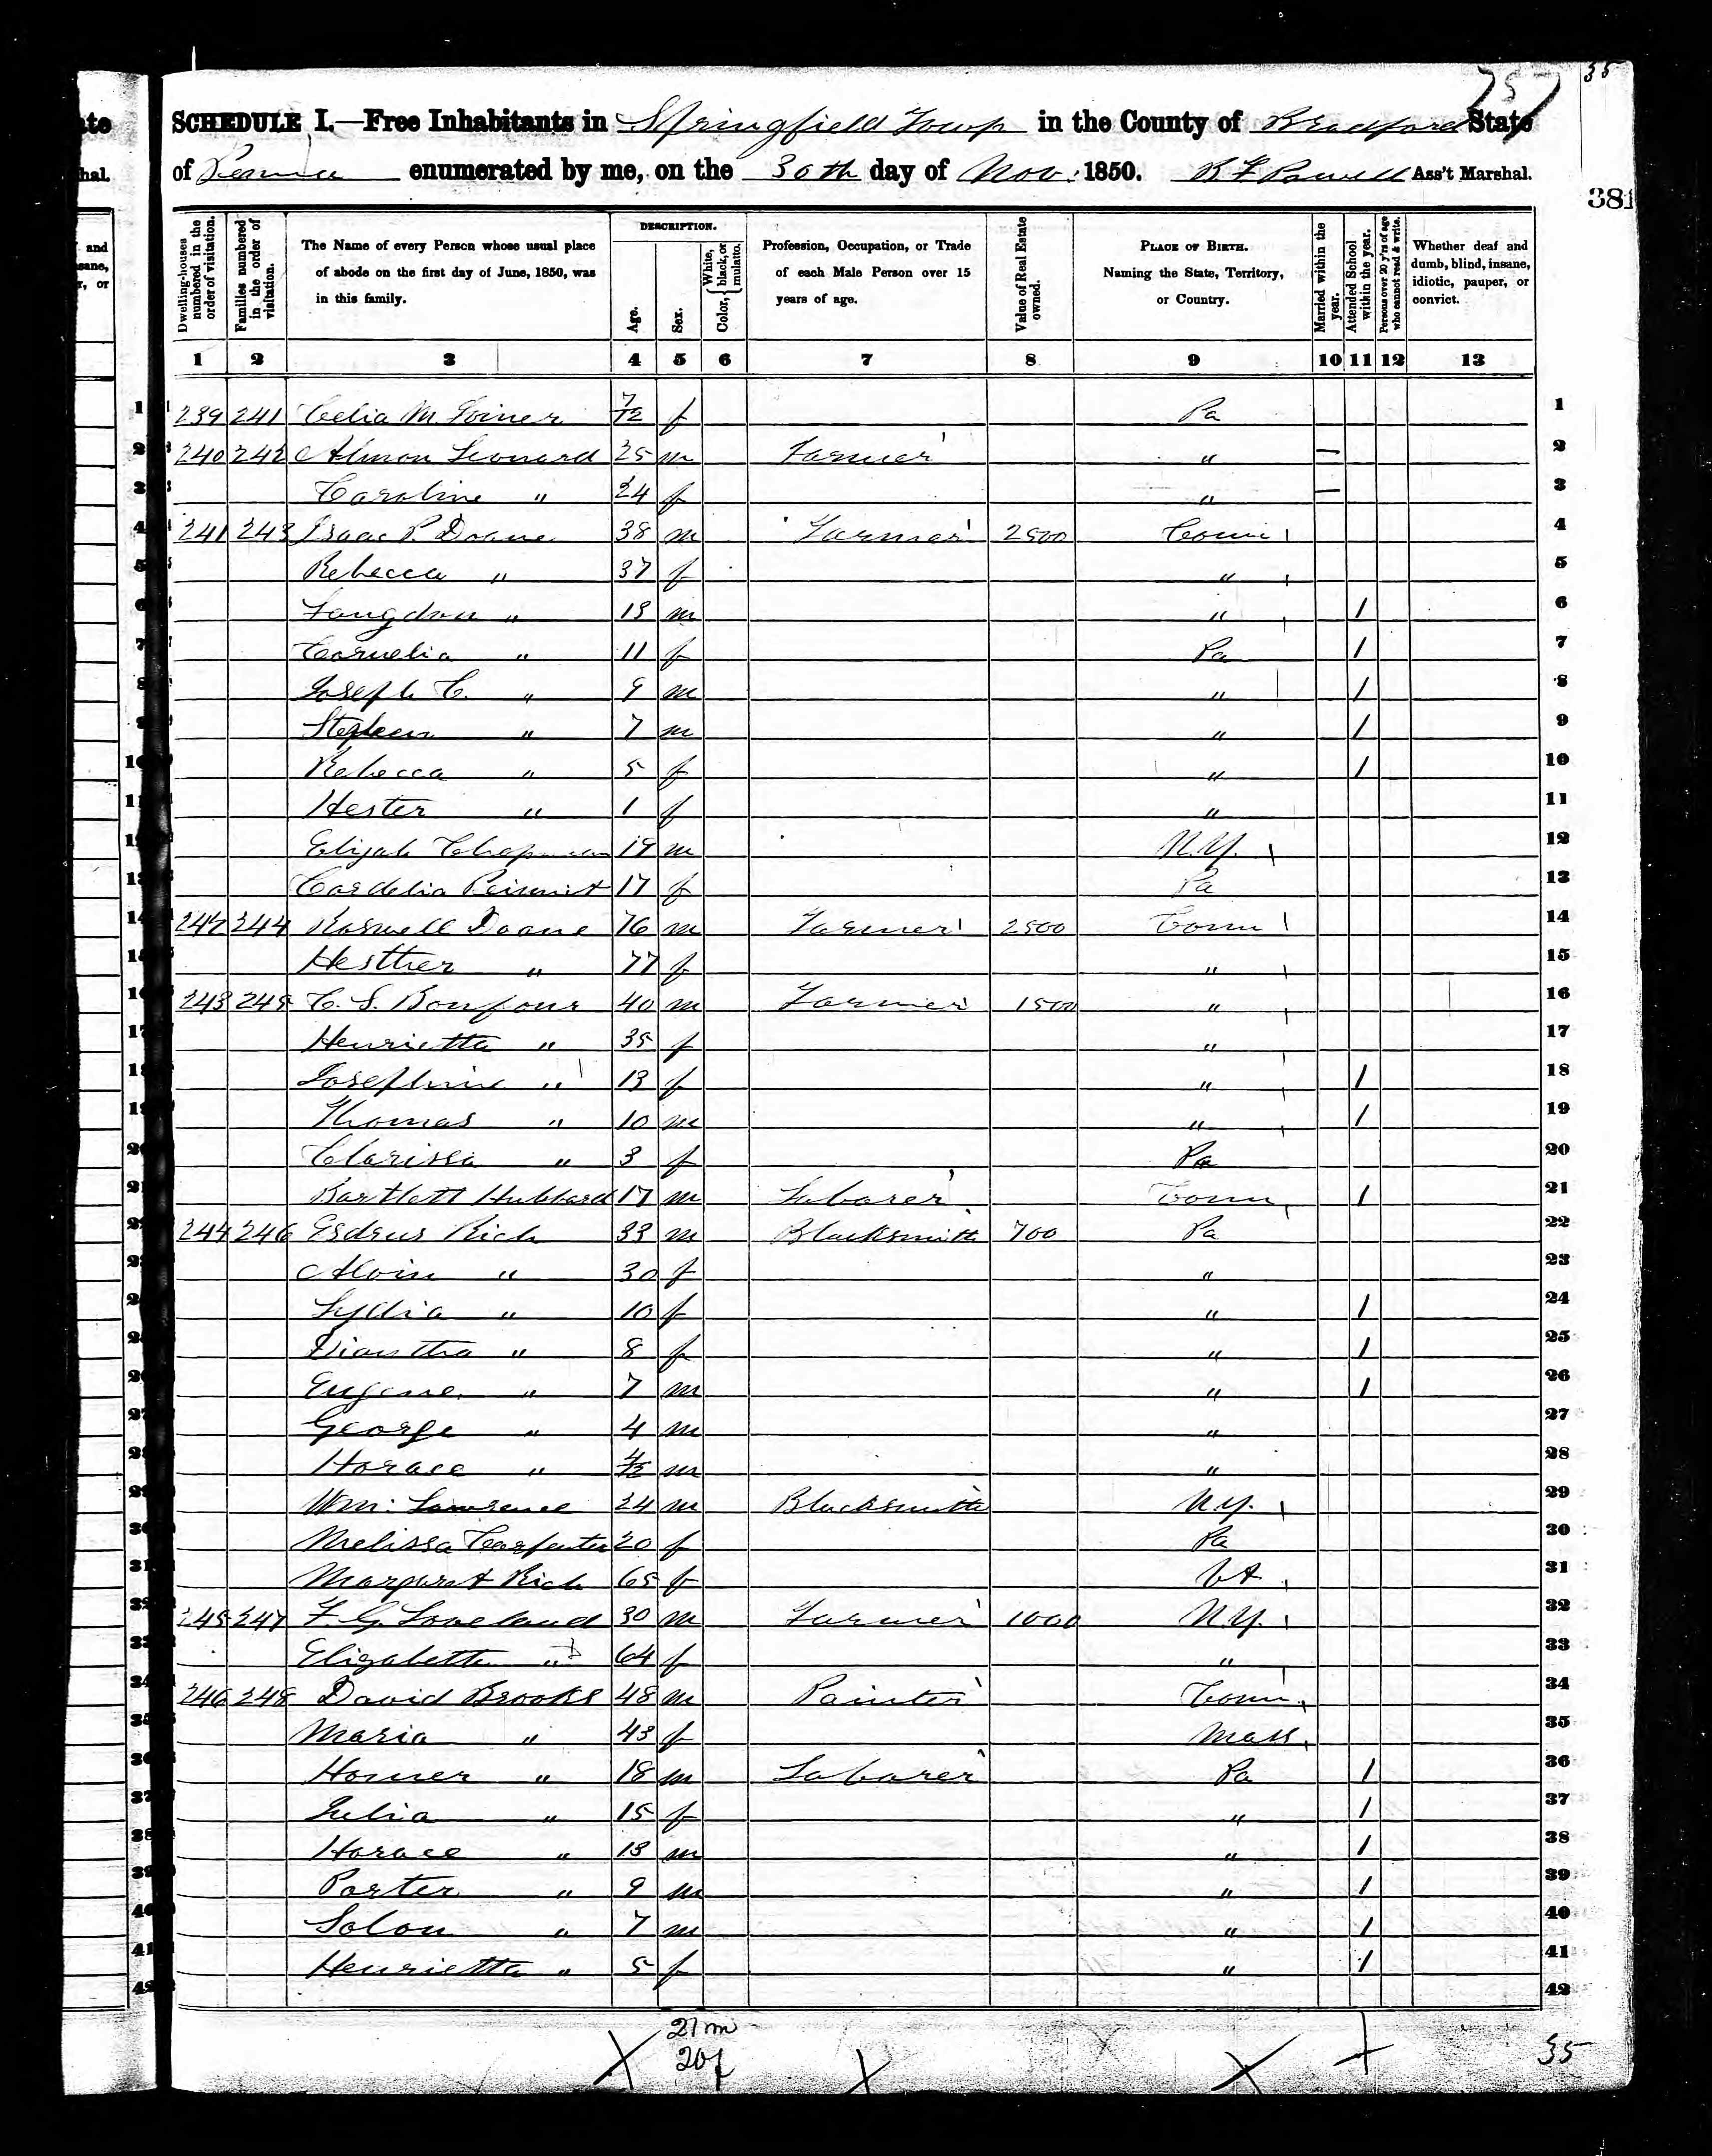 35
757
SCHEDULE I.—Free Inhabitants in Springfield Towp in the County of Bradford State
of Penna enumerated by me, on the 30th day of Nov. 1850. B F Powell Ass't Marshal.
381
Dwelling-houses numbered in the order of visitation.
Families numbered in the order of visitation.
The Name of every Person whose usual place of abode on the first day of June, 1850, was in this family.
DESCRIPTION.
Age.
Sex.
Color, { White, black, or mulatto.
Profession, Occupation, or Trade of each Male Person over 15 years of age.
Value of Real Estate owned.
PLACE OF BIRTH. Naming the State, Territory, or Country.
Married within the year.
Attended School within the year.
Persons over 20 y'rs of age who cannot read & write.
Whether deaf and dumb, blind, insane, idiotic, pauper, or convict.
1 2 3 4 5 6 7 8 9 10 11 12 13
1 239 241 Celia M. 7/12 f Pa 1
2 240 242 Almon Leonard 25 m Farmer " — 2
3 Caroline " 24 f " — 3
4 241 243 Isaac P. Doane 38 m Farmer 2500 Conn 4
5 Rebecca " 37 f " 5
6 Langdon " 13 m " / 6
7 Cornelia " 11 f Pa / 7
8 Joseph C. " 9 m " / 8
9 Stephen " 7 m " / 9
10 Rebecca " 5 f " / 10
11 Hester " 1 f " 11
12 Elijah Chapman 19 m N.Y. 12
13 Cordelia 17 f Pa 13
14 242 244 Roswell Doane 76 m Farmer 2500 Conn 14
15 Hesther " 77 f " 15
16 243 245 C. S. 40 m Farmer 1500 " 16
17 Henrietta " 35 f " 17
18 Josephine " 13 f " / 18
19 Thomas " 10 m " / 19
20 Clarissa " 3 f Pa 20
21 Bartlett Hubbard 17 m Laborer Conn / 21
22 244 246 Esdrus Rich 33 m Blacksmith 700 Pa 22
23 Alvin " 30 f " 23
24 Lydia " 10 f " / 24
25 Diantha " 8 f " / 25
26 Eugene " 7 m " / 26
27 George " 4 m " 27
28 Horace " 4/12 m " 28
29 Wm: Lawrence 24 m Blacksmith N.Y. 29
30 Melissa Carpenter 20 f Pa 30
31 Margaret Rich 65 f Vt 31
32 245 247 F. G. Loveland 30 m Farmer 1000 N.Y. 32
33 Elizabeth " 64 f " 33
34 246 248 David Brooks 48 m Painter Conn 34
35 Maria " 43 f Mass 35
36 Homer " 18 m Laborer Pa / 36
37 Julia " 15 f " / 37
38 Horace " 13 m " / 38
39 Porter " 9 m " / 39
40 Solon " 7 m " / 40
41 Henrietta " 5 f " / 41
42 42
21 m
20 f
35